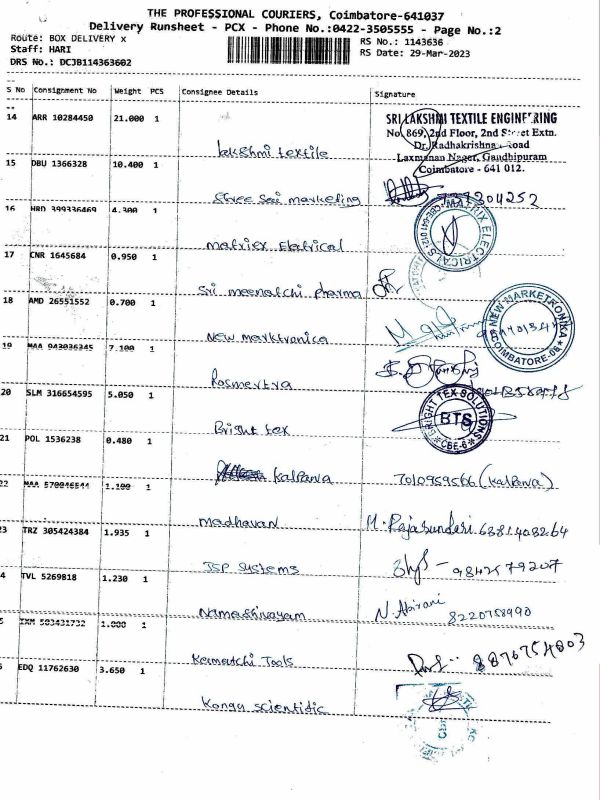 THE PROFESSIONAL COURIERS, Coimbatore-641037
Delivery Runsheet - PCX - Phone No.:0422-3505555 - Page No.:2
Route: BOX DELIVERY x
RS No.: 1143636
Staff: HARI
RS Date: 29-Mar-2023
DRS No.: DCJB114363602
S No Consignment No Weight PCS Consignee Details Signature
14 ARR 10284450 21.000 1
SRI LAKSHMI TEXTILE ENGINEERING
No 869, 2nd Floor, 2nd Street Extn.
Dr. Radhakrishnan Road
Laxmanan Nagar, Gandhipuram
Coimbatore - 641 012.
lakshmi textile
15 DBU 1366328 10.400 1
Shree Sai marketing
16 HRD 399336469 4.300 1
MATRIX ELECTRICALS
CBE-641 012
matriex Eletrical
17 CNR 1645684 0.950 1
Sri meenatchi pharma
18 AMD 26551552 0.700 1
NEW MARKETRONIKA
COIMBATORE-08
New marktronica
19 MAA 943036345 7.100 1
Rosmertra
20 SLM 316654595 5.050 1
BRIGHT TEX SOLUTIONS
BTS
CBE-6
Bright tex
21 POL 1536238 0.480 1
Kalpana 7010959566 (Kalpana)
22 MAA 570046544 1.100 1
madhavan M. Rajasundari 6381408264
23 TRZ 305424384 1.935 1
JSP Systems 9842579207
4 TVL 5269818 1.230 1
Nameshivayam N. Abirani
8220758990
5 IXM 503431732 1.000 1
Kamatchi Tools 8870754003
6 EDQ 11762630 3.650 1
Kongu scientific